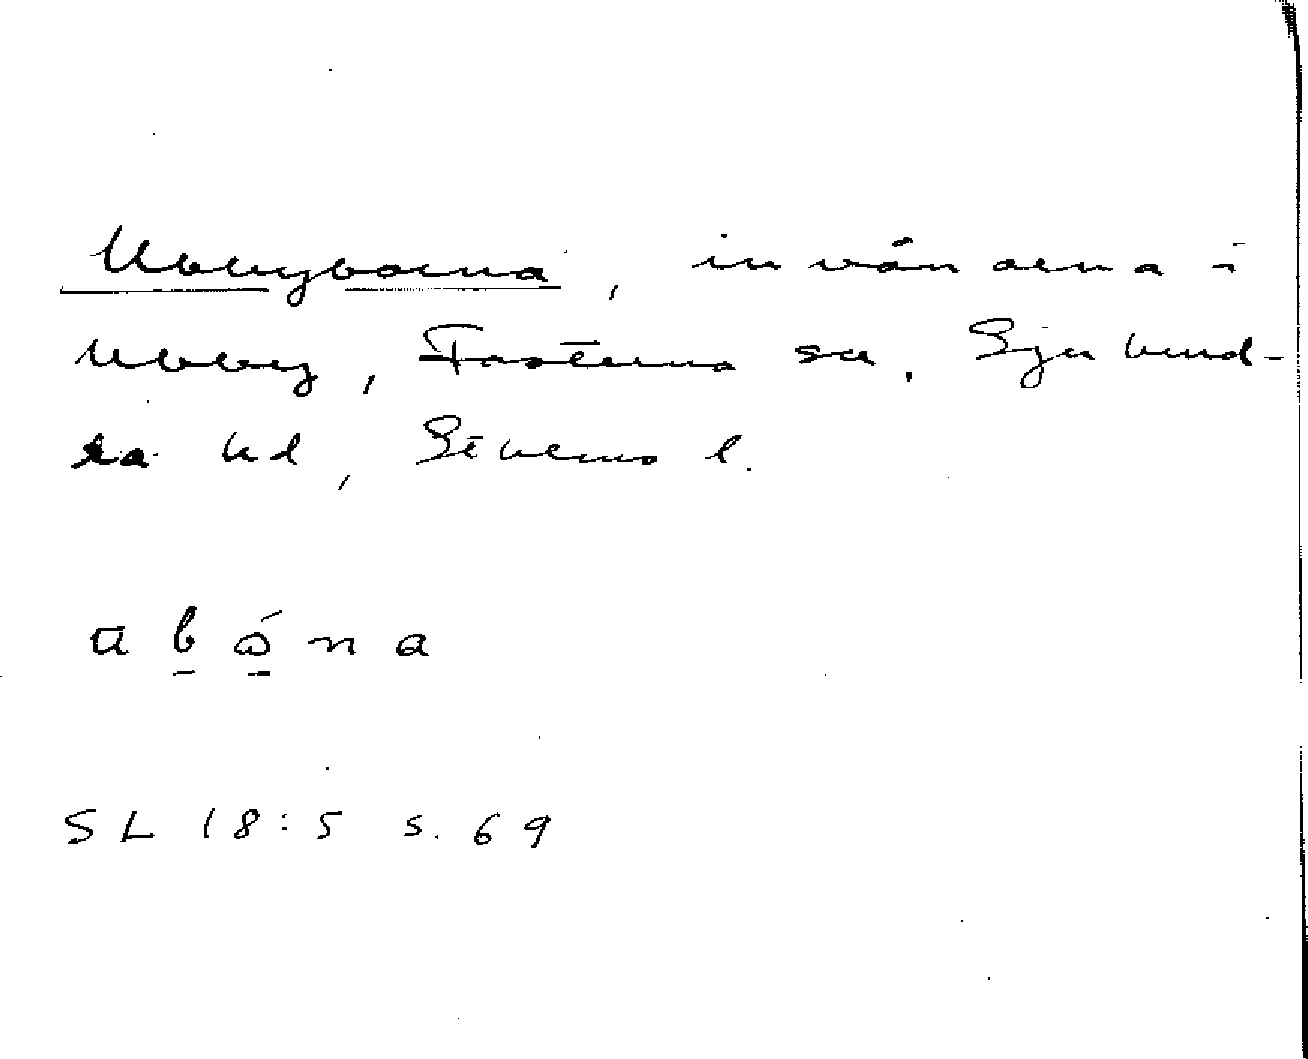 Ubbyborna, invånarna i
Ubby, Fasterna sn, Sjuhund-
ra hd, Sthlms l.
SL 18:5 s. 69